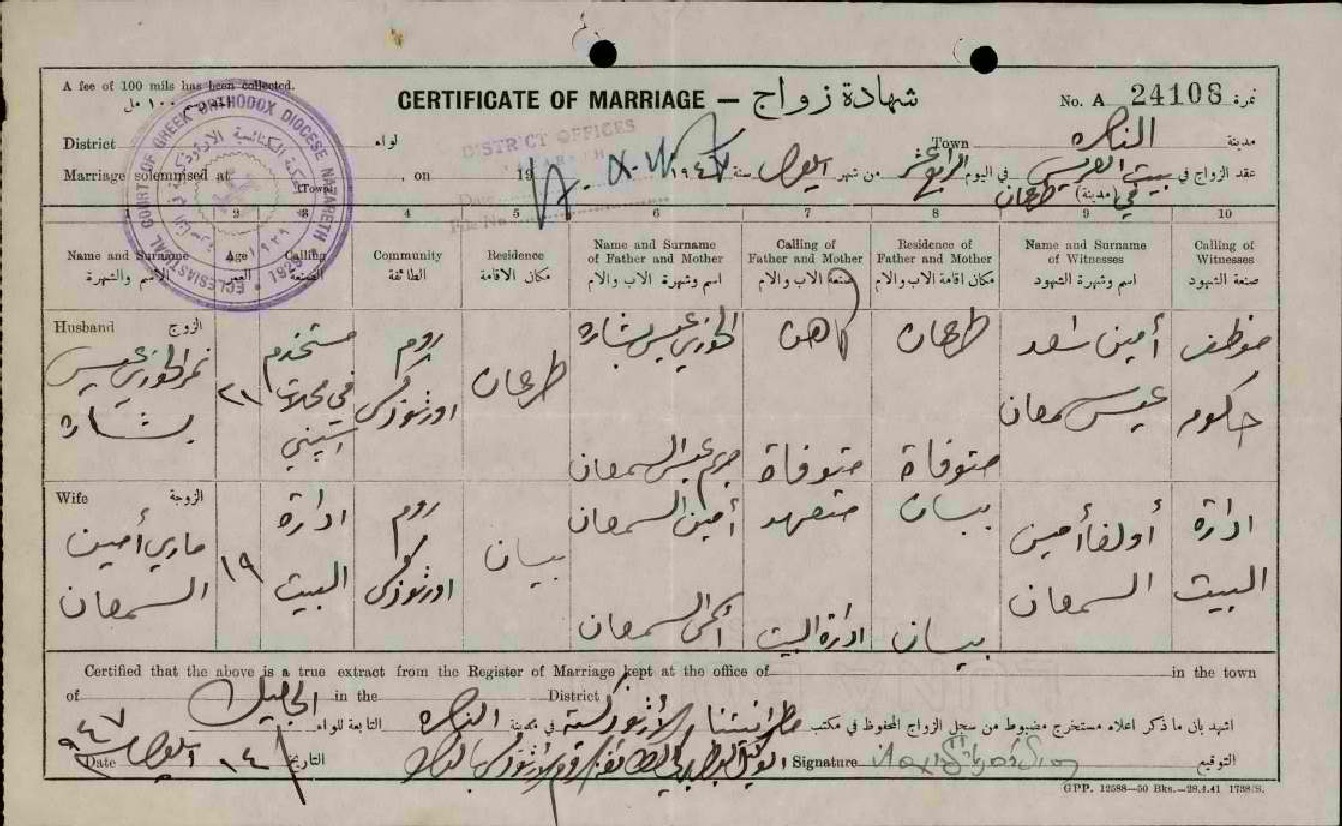 A fee of 100 mils has been collected.
CERTIFICATE OF MARRIAGE — شهادة زواج
No. A 24108 نمرة
District لواء
Town الناصرة مدينة
DISTRICT OFFICES
Marriage solemnised at (Town), on 19
عقد الزواج في بيت العريس في اليوم الرابع عشر من شهر ايلول سنة ١٩٤٧
في (مدينة) طرعان
ECCLESIASTICAL COURT OF GREEK ORTHODOX DIOCESE NAZARETH 1929
1 2 3 4 5 6 7 8 9 10
Name and Surname الاسم والشهرة
Age العمر
Calling الصنعة
Community الطائفة
Residence مكان الاقامة
Name and Surname of Father and Mother اسم وشهرة الاب والام
Calling of Father and Mother صنعة الاب والام
Residence of Father and Mother مكان اقامة الاب والام
Name and Surname of Witnesses اسم وشهرة الشهود
Calling of Witnesses صنعة الشهود
Husband الزوج
نمر الخوري عيسى بشارة
٢١
مستخدم في محلات
روم اورثوذكس
طرعان
الخوري عيسى بشاره
كاهن
طرعان
أمين اسعد
عيسى سمعان
موظف حكومه
مريم عيسى السمعان
متوفاة
متوفاة
Wife الزوجة
ماري أمين السمعان
١٩
ادارة البيت
روم اورثوذكس
بيسان
أمين السمعان
متعهد
بيسان
أولغا أمين السمعان
ادارة البيت
السمعان
ادارة البيت
بيسان
Certified that the above is a true extract from the Register of Marriage kept at the office of in the town
of in the District
اشهد بان ما ذكر اعلاه مستخرج مضبوط من سجل الزواج المحفوظ في مكتب مطرانيتنا الأرثوذكسية في مدينة الناصرة التابعة للواء الجليل
Date ١٤ ايلول سنة ٩٤٧ التاريخ
Signature التوقيع
GPP. 12588—50 Bks.—28.4.41 1738/S.